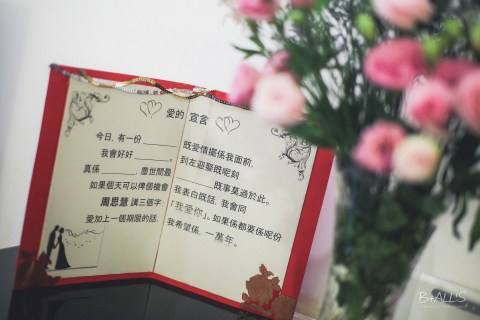 愛的 宣言
今日, 有一份 ________ 既愛情擺係我面前,
我會好好 ________。到左迎娶既呢刻
真係 ________, 塵世間最 ________既事莫過於此。
如果個天可以俾個機會我表白既話, 我會同
周思慧 講三個字:「我愛你」。如果係都要係呢份
愛加上一個期限的話, 我希望係, 一萬年。
B+ALL'S